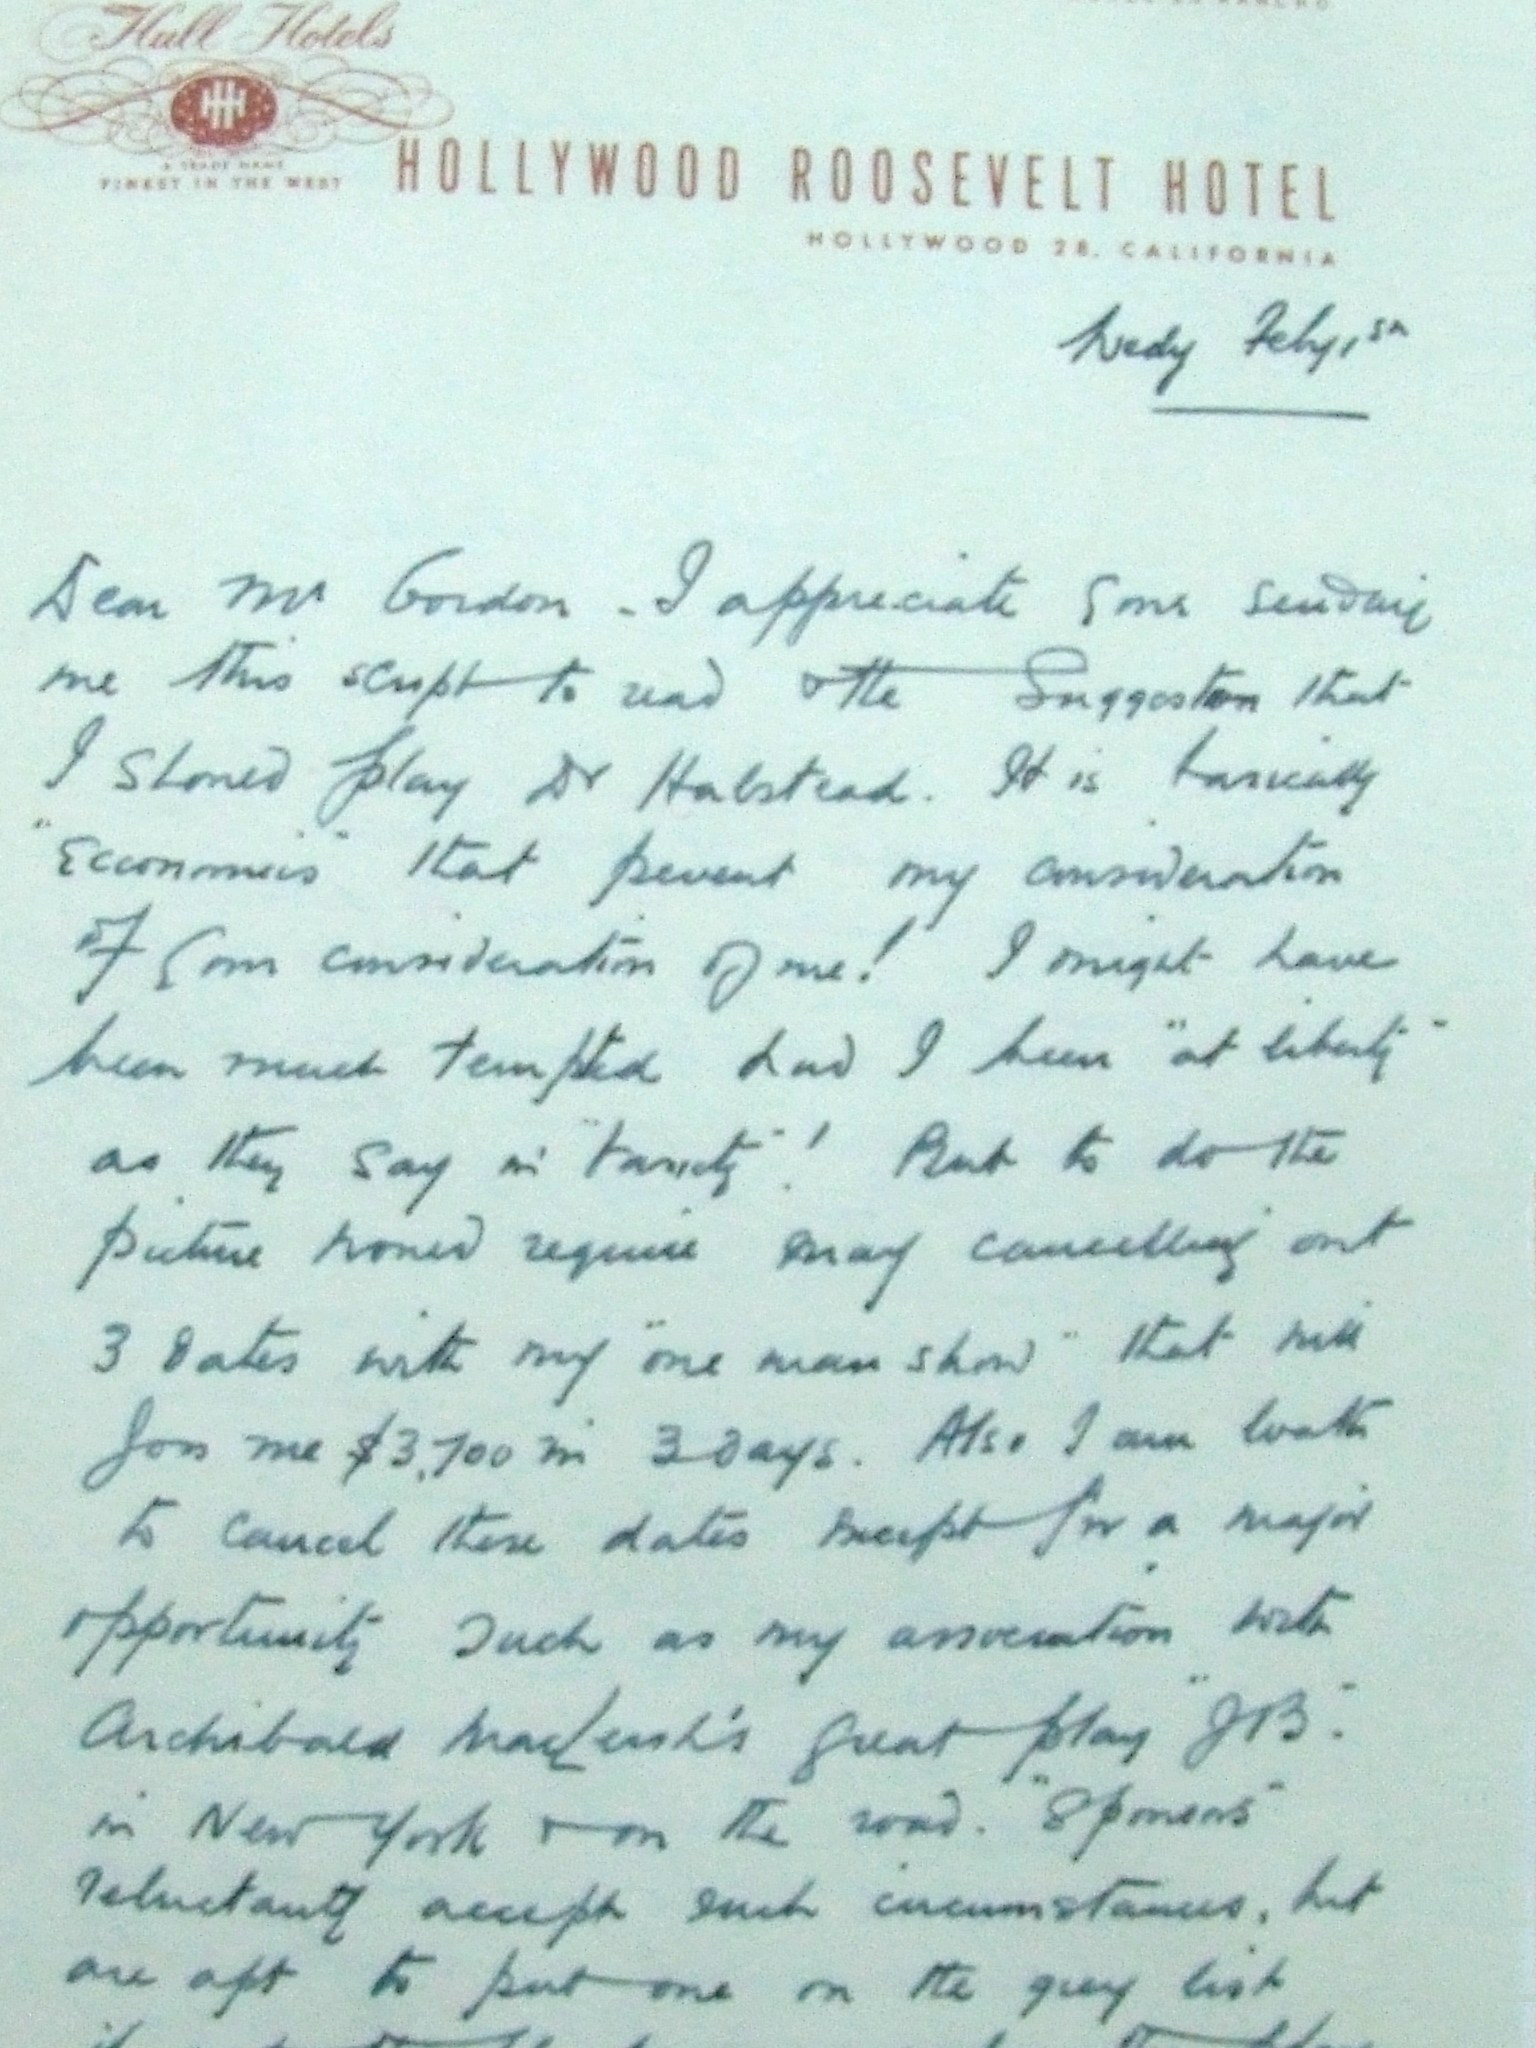 Hull Hotels
HHH
A TRADE NAME
FINEST IN THE WEST
HOLLYWOOD ROOSEVELT HOTEL
HOLLYWOOD 28, CALIFORNIA
Wedy Feby 1st
Dear Mr Gordon - I appreciate your sending
me this script to read & the Suggestion that
I should play Dr Halstead. It is basically
"Economics" that prevent my consideration
of your consideration of me! I might have
been much tempted had I been "at liberty"
as they say in "Variety"! But to do the
picture would require my cancelling out
3 dates with my "one man show" that will
gross me $3,700 in 3 days. Also I am loath
to cancel these dates except for a major
opportunity such as my association with
Archibald MacLeish's great play "JB".
in New York & on the road. "Sponsors"
reluctantly accept such circumstances, but
are apt to put one on the grey list